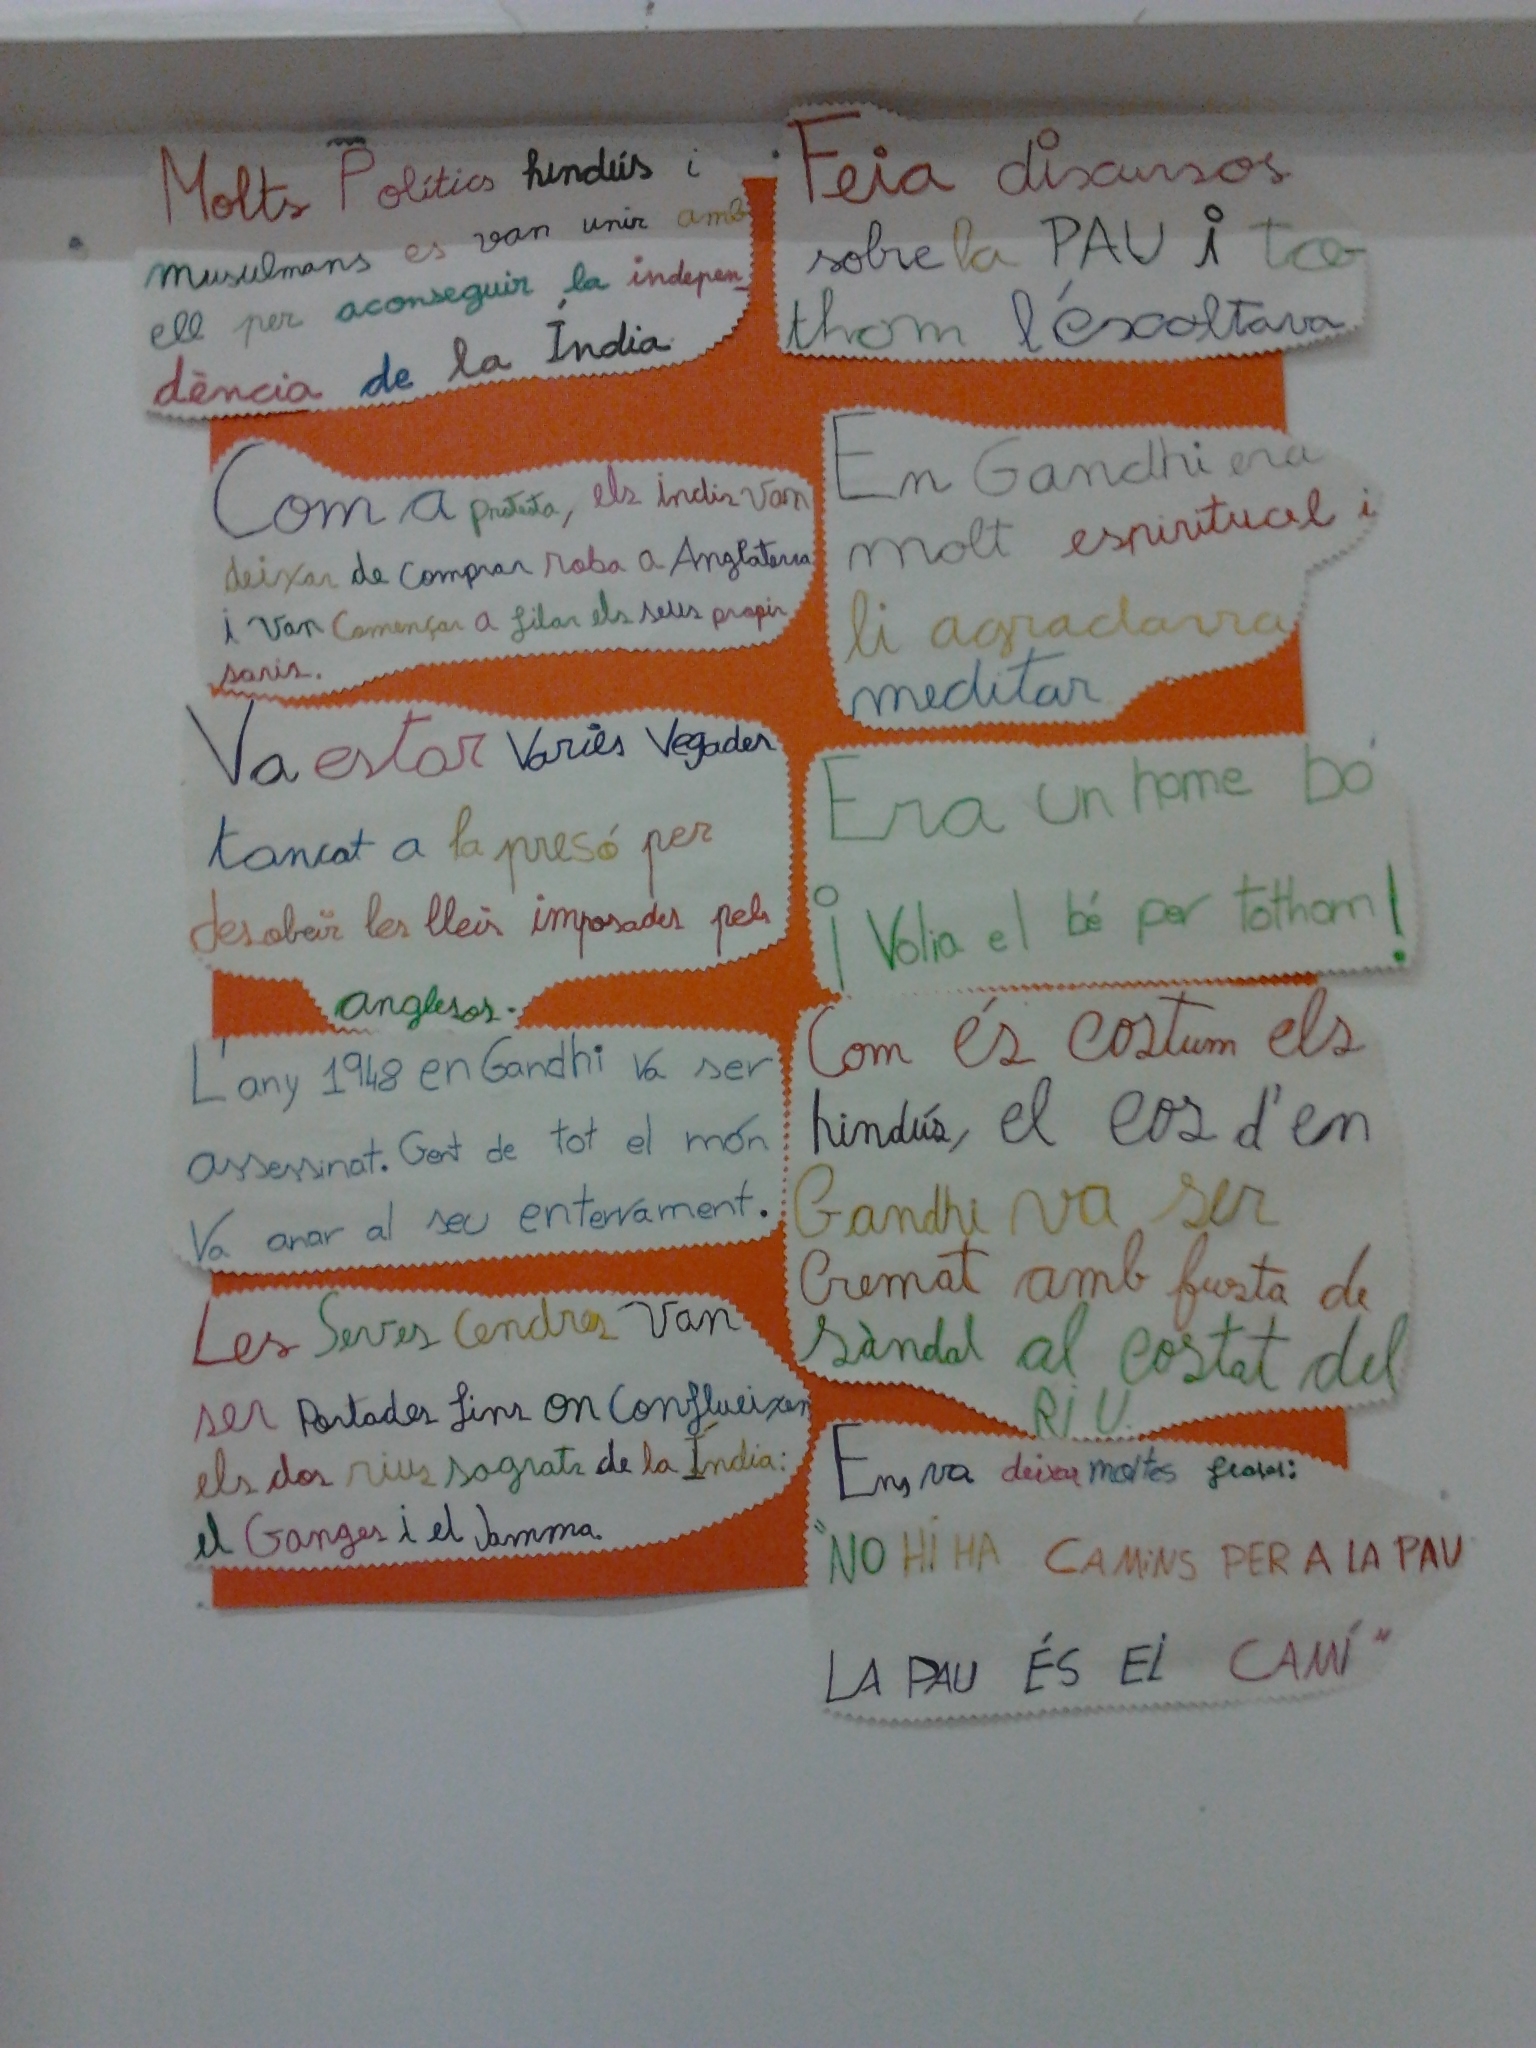 Molts Polítics hindús i
musulmans es van unir amb
ell per aconseguir la indepen_
dència de la Índia
Com a protesta, els indis van
deixar de comprar roba a Anglaterra
i van començar a filar els seus propis
saris.
Va estar Varies Vegades
tancat a la presó per
desobeïr les lleis imposades pels
anglesos.
L'any 1948 en Gandhi va ser
assessinat. Gent de tot el món
Va anar al seu enterrament.
Les Seves Cendres Van
ser Portades fins on Conflueixen
els dos rius sagrats de la Índia:
el Ganges i el Jamma.
Feia discursos
sobre la PAU i to-
thom l'escoltava
En Gandhi era
molt espiritual i
li agradava
meditar
Era un home bó
i Volia el bé per tothom!
Com és costum els
hindús, el cos d'en
Gandhi va ser
Cremat amb fusta de
sàndal al costat del
RiU.
Ens va deixar moltes frases:
"NO HI HA CAMINS PER A LA PAU
LA PAU ÉS El CAMÍ"